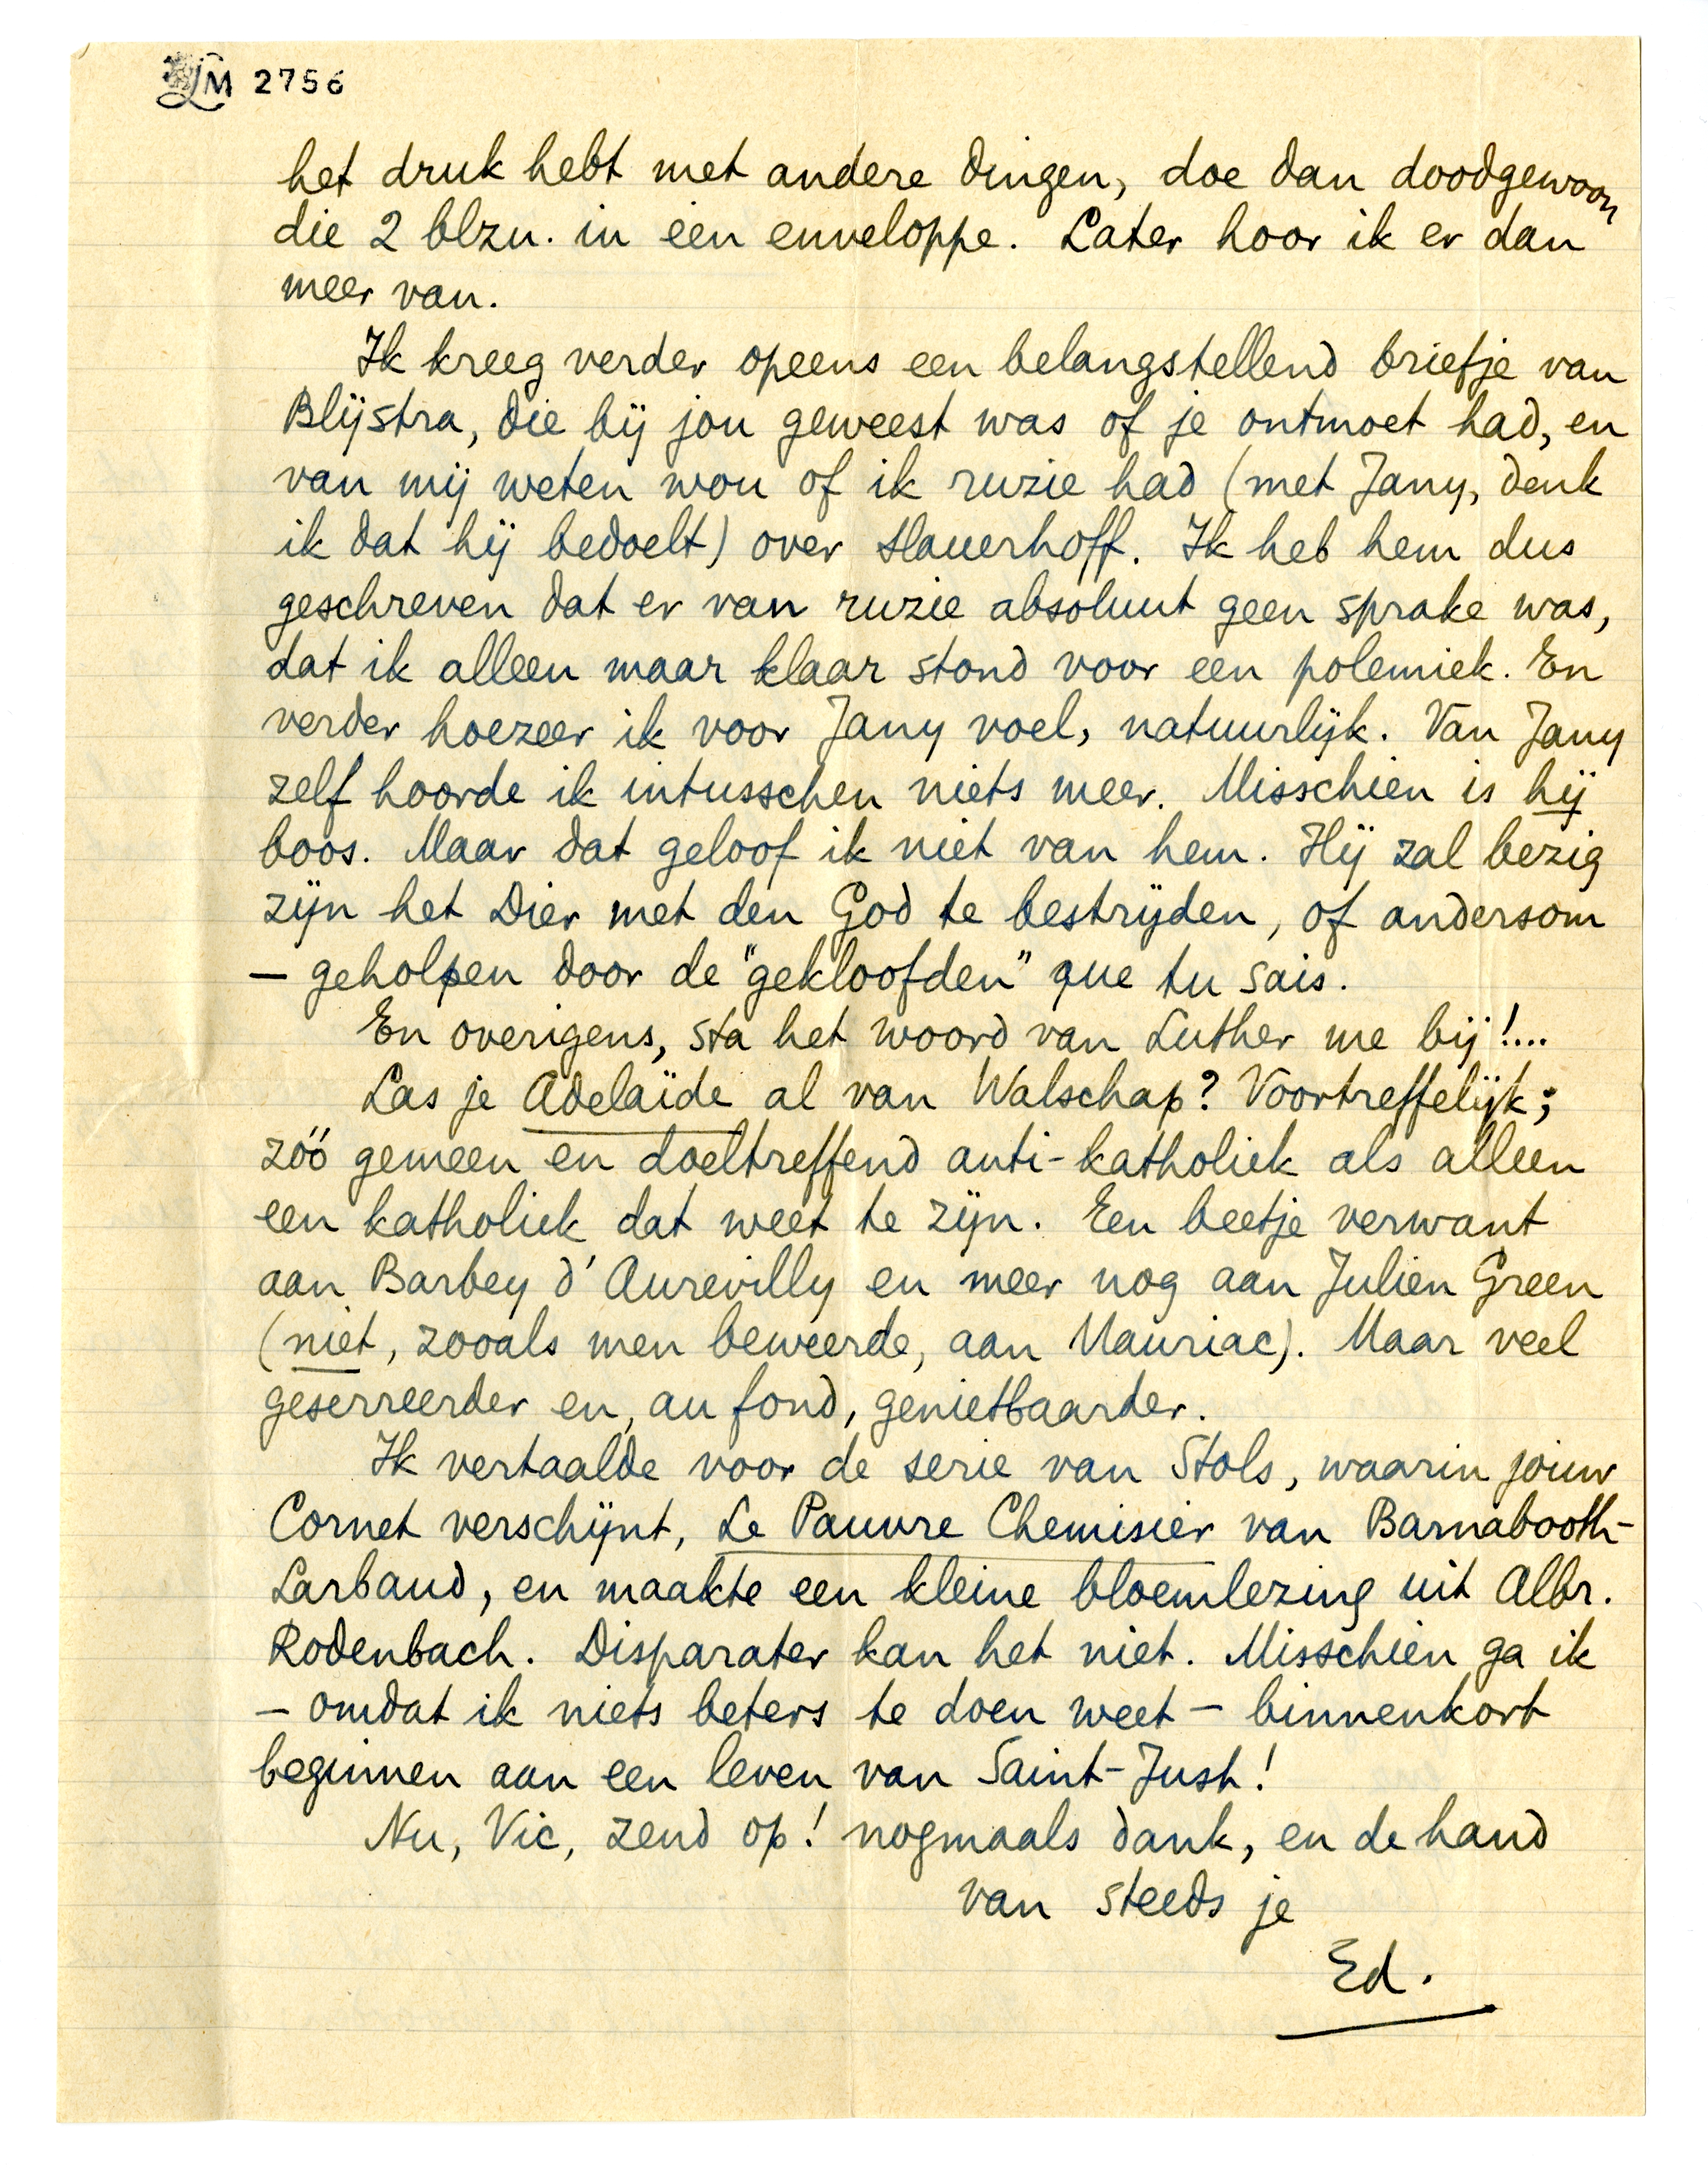 LM 2756
het druk hebt met andere dingen, doe dan doodgewoon
die 2 blzn. in een enveloppe. Later hoor ik er dan
meer van.
Ik kreeg verder opeens een belangstellend briefje van
Blijstra, die bij jou geweest was of je ontmoet had, en
van mij weten wou of ik ruzie had (met Jany, denk
ik dat hij bedoelt) over Slauerhoff. Ik heb hem dus
geschreven dat er van ruzie absoluut geen sprake was,
dat ik alleen maar klaar stond voor een polemiek. En
verder hoezeer ik voor Jany voel, natuurlijk. Van Jany
zelf hoorde ik intusschen niets meer. Misschien is hij
boos. Maar dat geloof ik niet van hem. Hij zal bezig
zijn het Dier met den God te bestrijden, of andersom
— geholpen door de "gekloofden" que tu sais.
En overigens, sta het woord van Luther me bij!...
Las je Adelaïde al van Walschap? Voortreffelijk;
zóó gemeen en doeltreffend anti-katholiek als alleen
een katholiek dat weet te zijn. Een beetje verwant
aan Barbey d'Aurevilly en meer nog aan Julien Green
(niet, zooals men beweerde, aan Mauriac). Maar veel
geserreerder en, au fond, genietbaarder.
Ik vertaalde voor de serie van Stols, waarin jouw
Cornet verschijnt, Le Pauvre Chemisier van Barnabooth-
Larbaud, en maakte een kleine bloemlezing uit Albr.
Rodenbach. Disparater kan het niet. Misschien ga ik
— omdat ik niets beters te doen weet — binnenkort
beginnen aan een leven van Saint-Just!
Nu, Vic, zend op! nogmaals dank, en de hand
van steeds je
Ed.